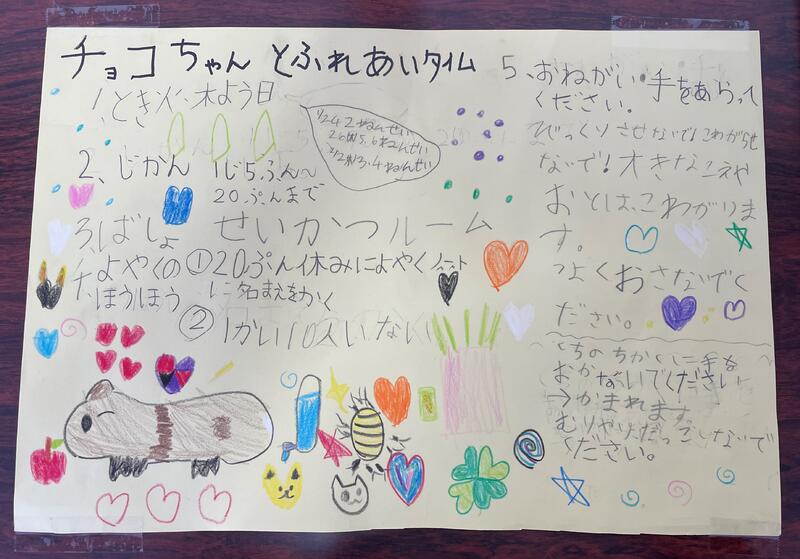 チョコちゃん とふれあいタイム
1、とき火、木よう日
1/24 2ねんせい
5.6ねんせい
3.4ねんせい
2、じかん 1じ5ふん〜
20ぷんまで
3、ばしょ せいかつルーム
4、よやくの ①20ぷん休みによやくノート
ほうほう に名まえをかく
② 1かい10人いない
5、おねがい・手をあらって
ください。
びっくりさせないで!こわがらせ
ないで!大きなこえや
おとは、こわがりま
す。
つよくおさないでく
ださい。
くちのちかくに手を
おかないでください
→かまれます。
むりやりだっこしないで
ください。